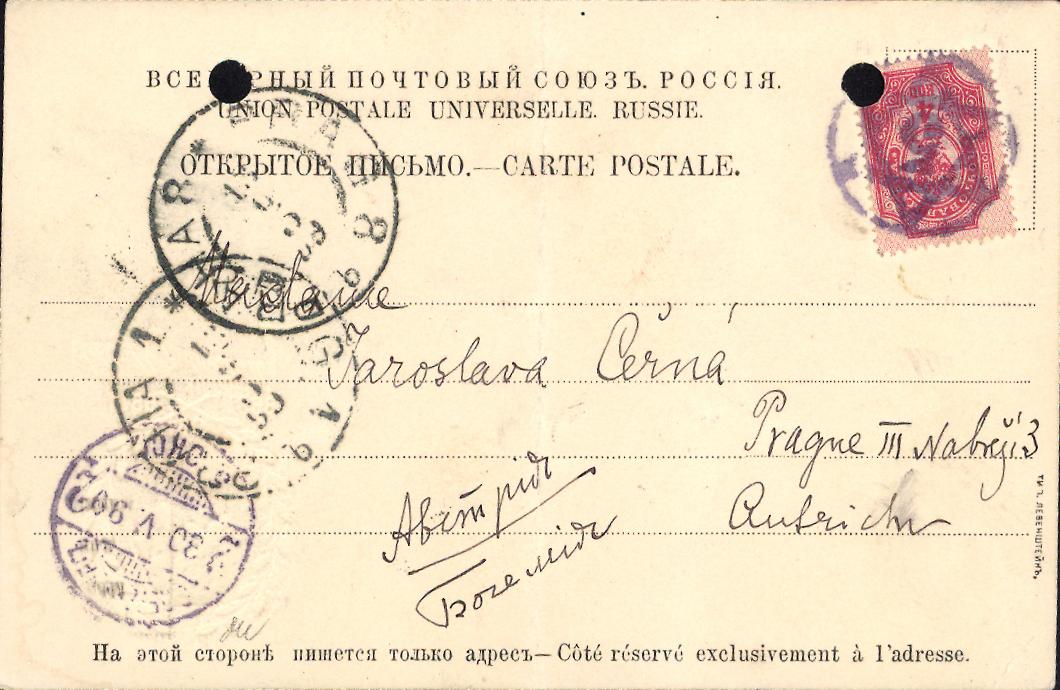 ВСЕ РНЫЙ ПОЧТОВЫЙ СОЮЗЪ. РОССІЯ.
UNION POSTALE UNIVERSELLE. RUSSIE.
ОТКРЫТОЕ ПИСЬМО.—CARTE POSTALE.
Madame
Jaroslava Černá
Prague III Nabřeží 3
Autriche
Австрія
Богемія
30 V 99
ЛЕВЕНШТЕЙНЪ.
На этой сторонѣ пишется только адресъ—Côté réservé exclusivement à l'adresse.